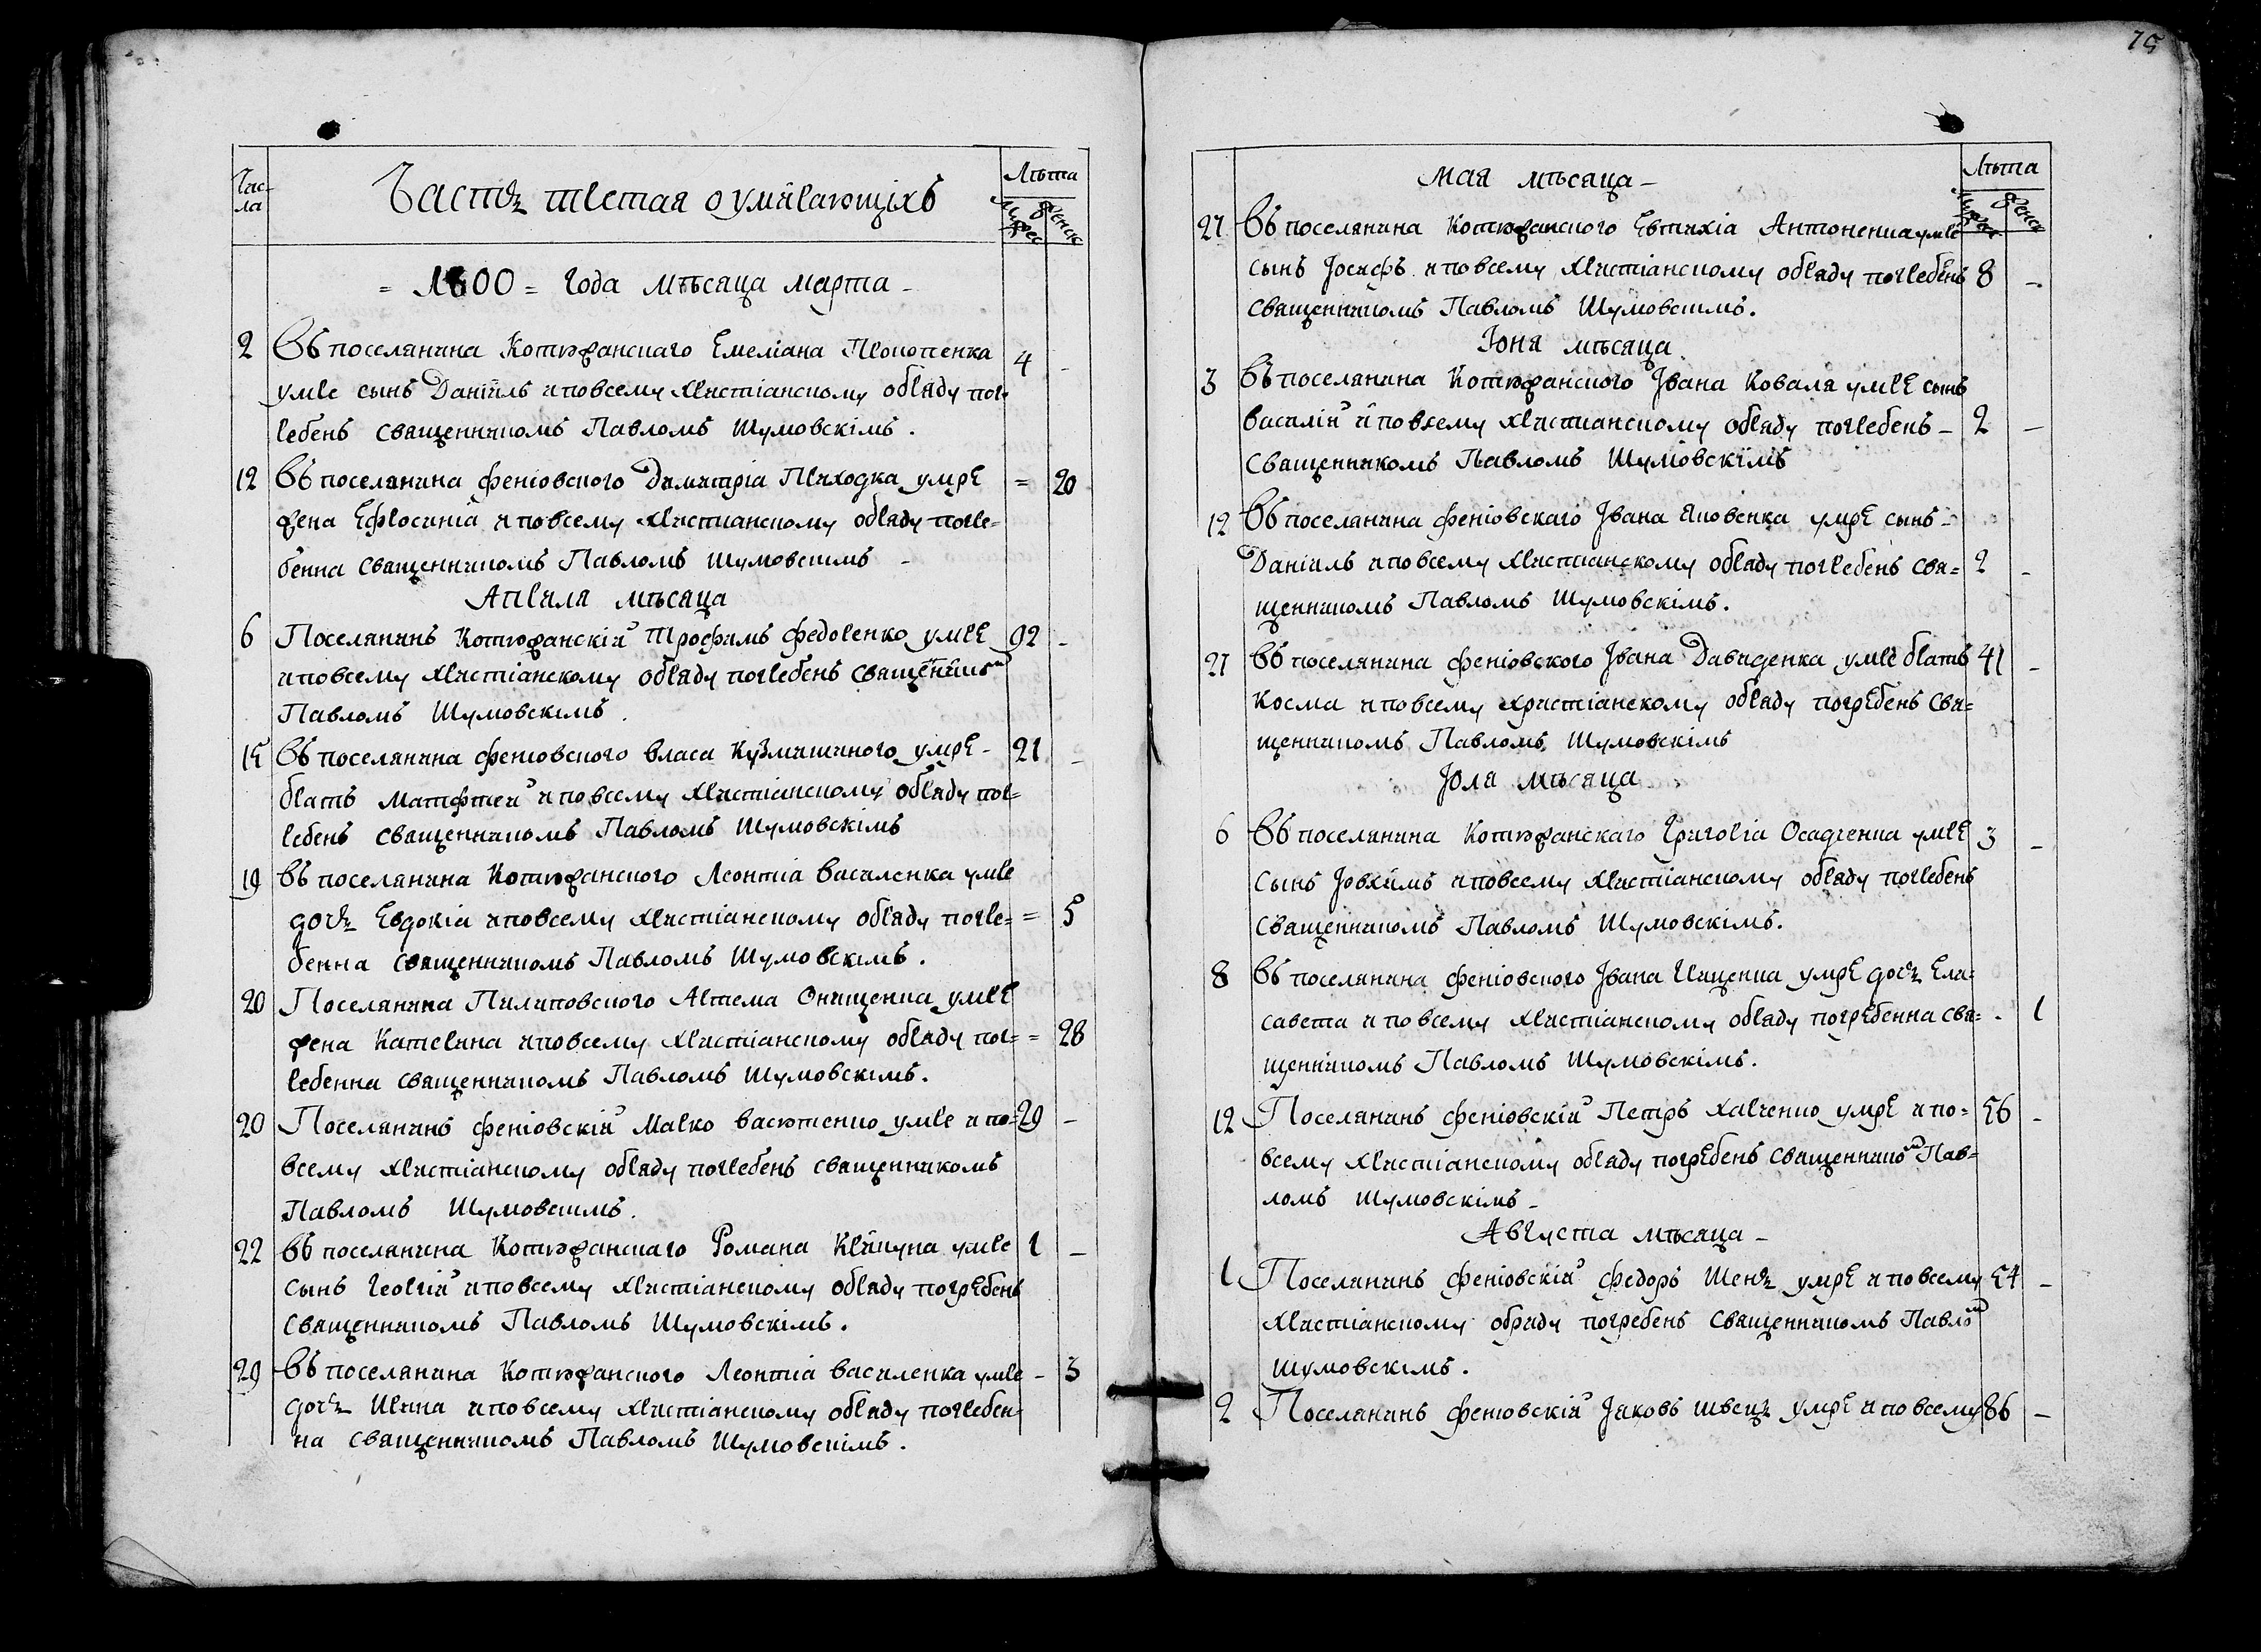 75
Чис-
ла
Часть третая о умирающихъ
Лѣта
Мужес
Женск
= 1800 = года мѣсаца марта -
2 Въ поселянина Котюжанскаго Емеліана Прокопенка 4 -
умре сынъ Даніилъ и повсему христіанскому обряду пог-
ребенъ священникомъ Павломъ Шумовскімъ.
12 Въ поселянина феніовского Димитріа Приходка умре = 20
жена Ефросиніа и повсему христианскому обряду погре=
бенна священникомъ Павломъ Шумовскимъ -
Априля мѣсаца
6 Поселянинъ Котюжанскій Трофимъ Федоренко умре 92 -
и повсему христіанскому обряду погребенъ священником
Павломъ Шумовскимъ.
15 Въ поселянина феніовского Власа Кузмишиного умре - 21 -
братъ Матфтей и повсему христианскому обряду пог=
ребенъ священникомъ Павломъ Шумовскімъ
19 Въ поселянина Котюжанского Леонтіа Василенка умре
дочь Евдокіа и повсему христіанскому обряду погре= = 5
бенна священникомъ Павломъ Шумовскімъ.
20 Поселянина Пилиповского Артема Онищенка умре
жена Катерина и повсему христіанскому обряду пог= = 28
ребенна священникомъ Павломъ Шумовскімъ.
20 Поселянинъ феніовскій Марко Васютенко умре и по= 29 -
всему христіанскому обряду погребенъ священникомъ
Павломъ Шумовскимъ.
22 Въ поселянина Котюжанскаго Романа Крикуна умре 1 -
сынъ Георгій и повсему христіанскому обряду погребенъ
священникомъ Павломъ Шумовскімъ.
29 Въ поселянина Котюжанского Леонтіа Василенка умре - 3
дочь Ирина и повсему христіанскому обряду погребен-
на священникомъ Павломъ Шумовскімъ.
Мая мѣсаца -
Лѣта
Женск
27 Въ поселянина Котюжанского Евтихіа Антоненка умре
сынъ Іосифъ и повсему христіанскому обряду погребенъ 8 -
священникомъ Павломъ Шумовскимъ.
Іюня мѣсаца
3 Въ поселянина Котюжанского Івана Коваля умре сынъ
Василій и повсему христианскому обряду погребенъ - 2 -
священникомъ Павломъ Шумовскімъ
12 Въ поселянина феніовскаго Івана Яковенка умре сынъ -
Даніилъ и повсему христіанскому обряду погребенъ свя= 2 -
щенникомъ Павломъ Шумовскімъ.
27 Въ поселянина феніовского Івана Давиденка умре братъ 41 -
Косма и повсему христіанскому обряду погребенъ свя=
щенникомъ Павломъ Шумовскімъ
Іюля мѣсаца
6 Въ поселянина Котюжанскаго Григоріа Осадченка умре 3 -
сынъ Іовхимъ и повсему христіанскому обряду погребенъ
священникомъ Павломъ Шумовскімъ.
8 Въ поселянина феніовского Івана Ищенка умре дочь Ели=
савета и повсему христіанскому обряду погребенна свя= - 1
щенникомъ Павломъ Шумовскімъ.
12 Поселянинъ феніовскій Петръ Харченко умре и по= 56 -
всему христіанскому обряду погребенъ священником Пав=
ломъ Шумовскімъ -
Августа мѣсаца -
1 Поселянинъ феніовскій Федоръ умре и повсему 54 -
христіанскому обряду погребенъ священникомъ Павлом
Шумовскімъ.
2 Поселянинъ феніовскій Іаковъ Швець умре и повсему 86 -